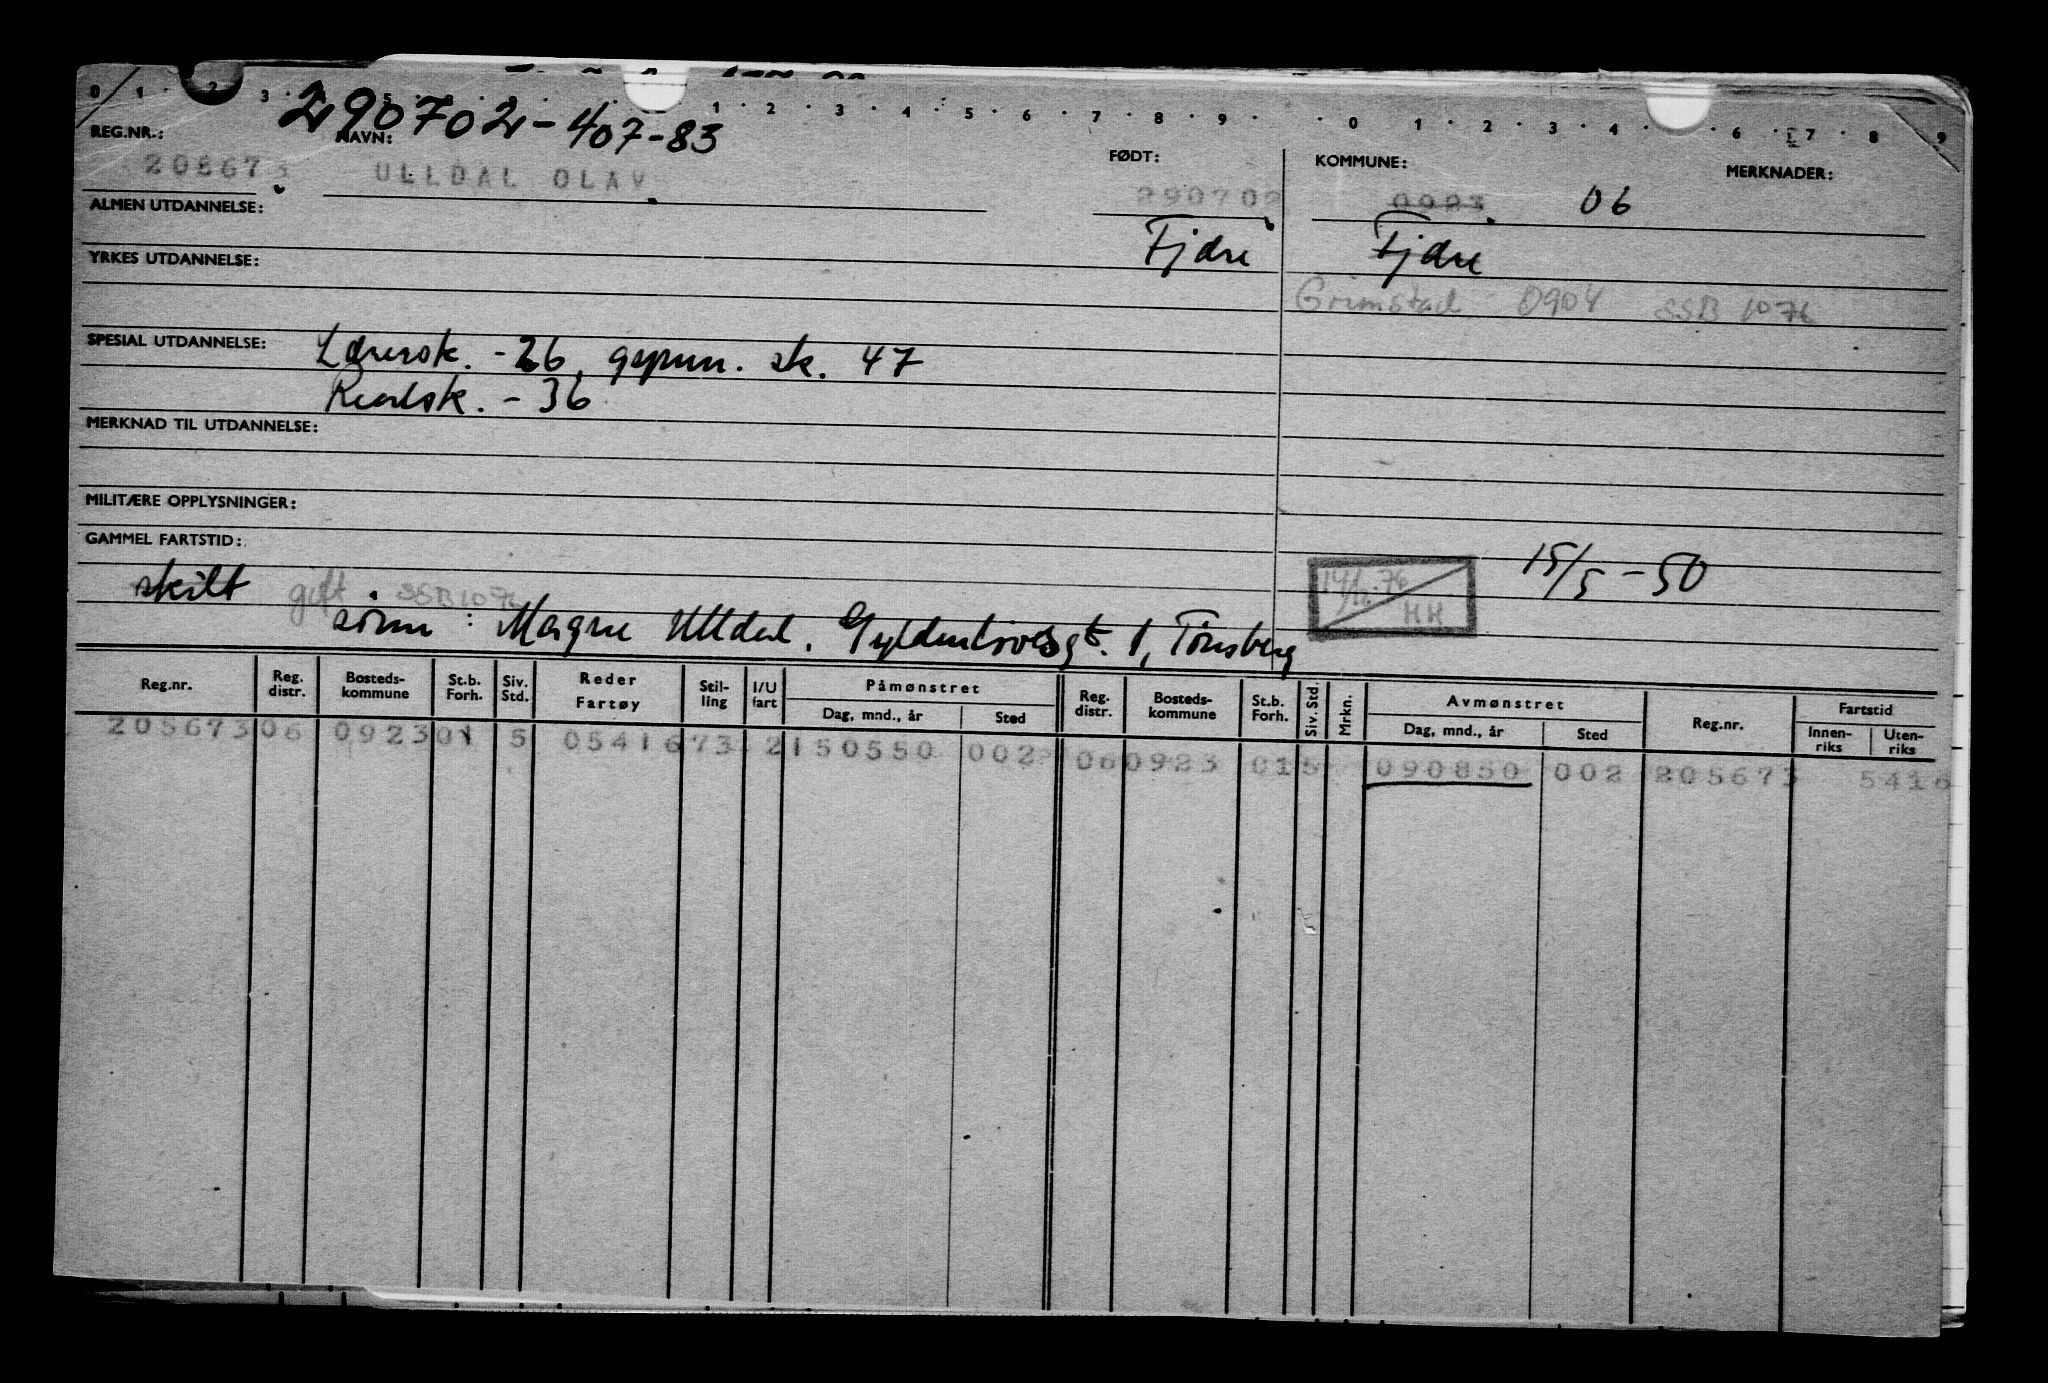 0 1 2 3 5 1 2 3 4 5 6 7 8 9 0 1 2 3 4 6 7 8 9
290702-407-83
REG.NR.: NAVN: FØDT: KOMMUNE: MERKNADER:
205673 ULLDAL OLAV 290702 0923 06
ALMEN UTDANNELSE:
Fjære Fjære
YRKES UTDANNELSE:
Grimstad 0904 SSB 1076
SPESIAL UTDANNELSE: Lærersk. - 26, sk. 47
Realsk. - 36
MERKNAD TIL UTDANNELSE:
MILITÆRE OPPLYSNINGER:
GAMMEL FARTSTID:
skilt gift SSB 1076 15/5 - 50
HH
sønn : Magne Ulldal. Gyldenløvesgt. 1, Tønsberg
Reg.nr. Reg. distr. Bosteds-kommune St.b. Forh. Siv. Std. Reder Fartøy Stil-ling I/U fart Påmønstret Dag, mnd., år Sted Reg. distr. Bosteds-kommune St.b. Forh. Siv. Std. Mrkn. Avmønstret Dag, mnd., år Sted Reg.nr. Fartstid Innen-riks Uten-riks
205673 06 0923 01 5 05416 73 2 150550 002 06 0923 01 5 090850 002 205673 5416